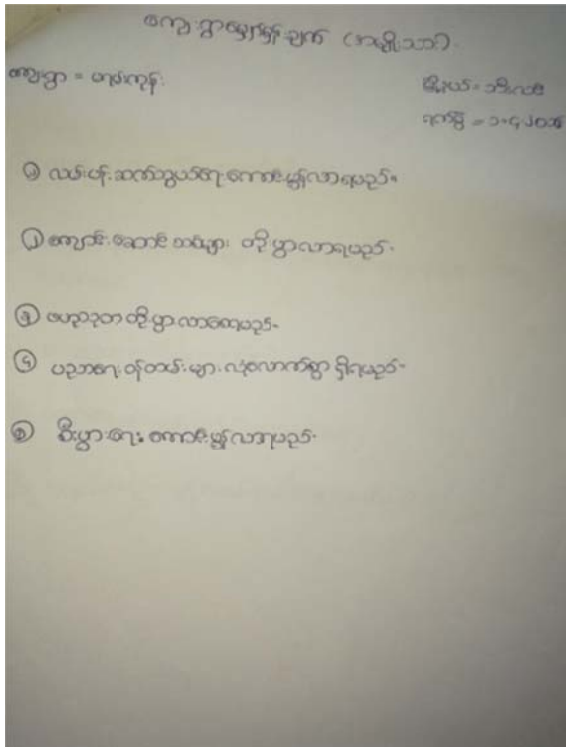 ကျေးရွာမျှော်မှန်းချက် (အမျိုးသား)
ကျေးရွာ =
မြို့နယ် =
ရက်စွဲ =
၁ လမ်းပန်းဆက်သွယ်ရေးကောင်းမွန်လာရမည်။
၂ ကျောင်းဆောင်သစ်များ တိုးပွားလာရမည်။
၃ ဗဟုသုတတိုးပွားလာစေမည်။
၄ ပညာရေးဝန်ထမ်းများလုံလောက်စွာရှိရမည်။
၅ စီးပွားရေးကောင်းမွန်လာရမည်။